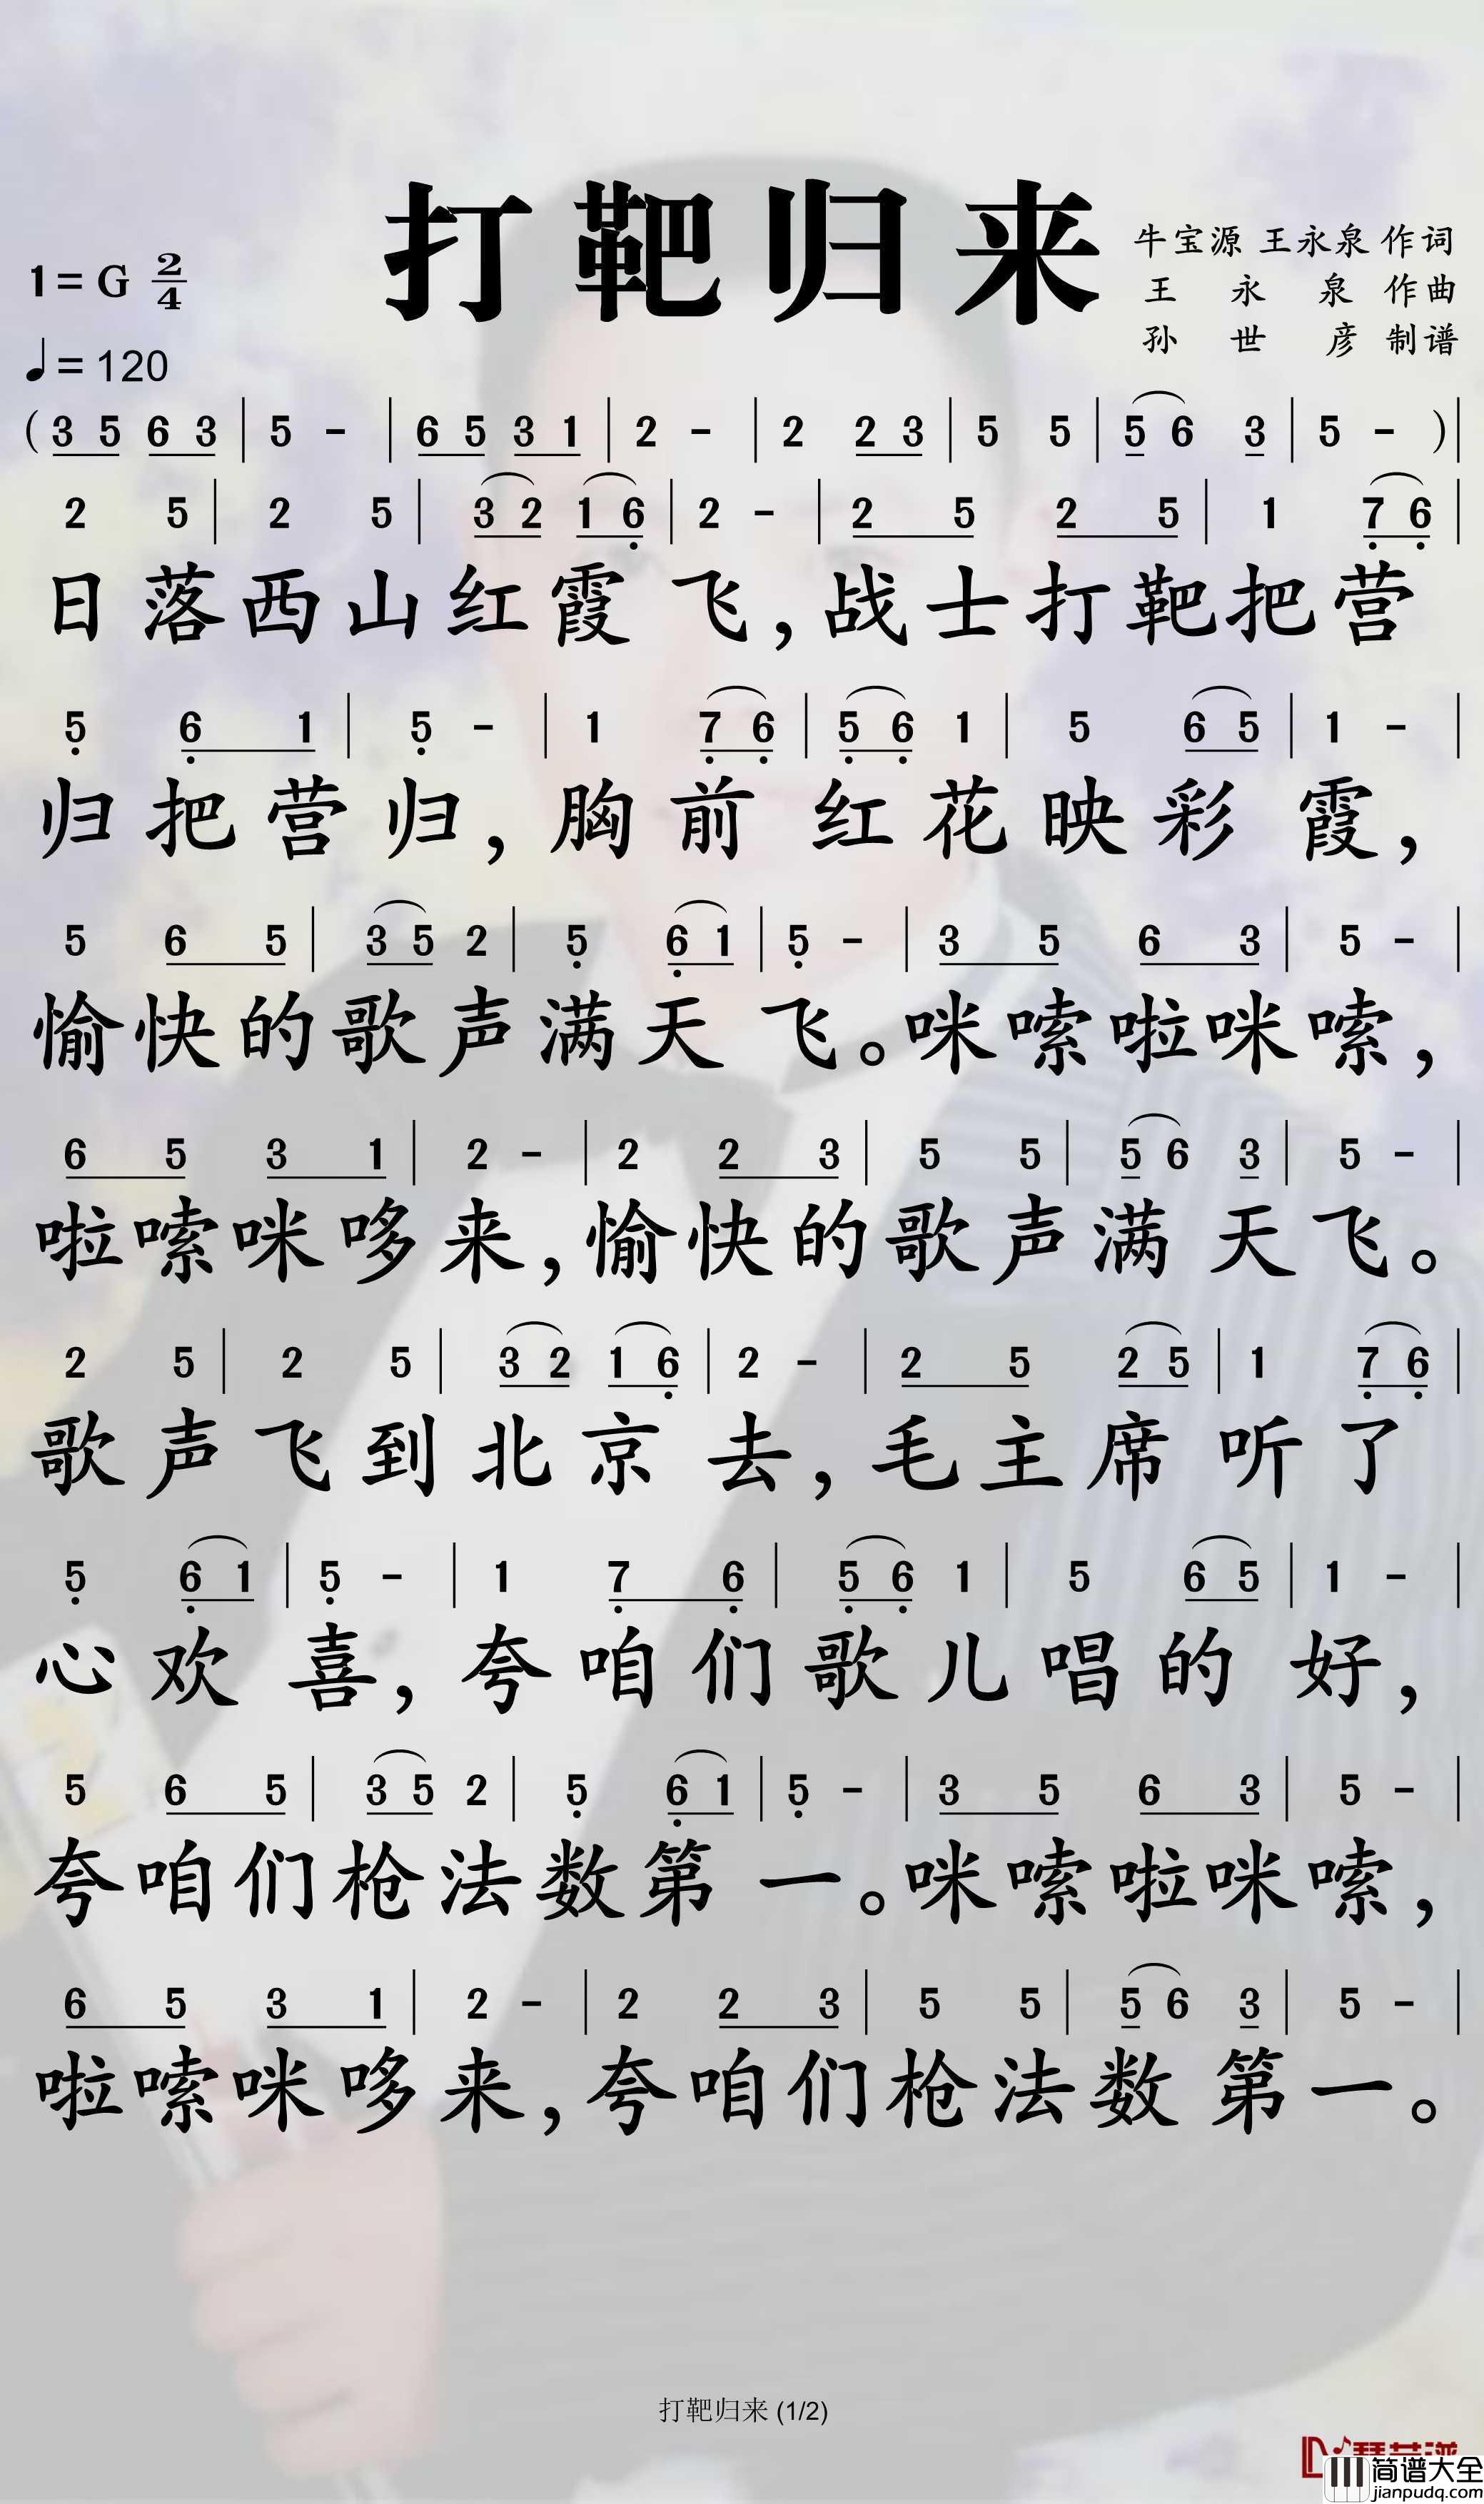 打靶归来
牛宝源 王永泉 作词
1=G 2/4
王 永 泉 作曲
孙 世 彦 制谱
♩=120
(3 5 6 3 | 5 - | 6 5 3 1 | 2 - | 2 2 3 | 5 5 | 5 6 3 | 5 - )|
2 5 | 2 5 | 3 2 1 6 | 2 - | 2 5 2 5 | 1 7 6 |
日落西山红霞飞,战士打靶把营
5 6 1 | 5 - | 1 7 6 | 5 6 1 | 5 6 5 | 1 - |
归把营归,胸前红花映彩霞,
5 6 5 | 3 5 2 | 5 6 1 | 5 - | 3 5 6 3 | 5 - |
愉快的歌声满天飞。咪嗦啦咪嗦,
6 5 3 1 | 2 - | 2 2 3 | 5 5 | 5 6 3 | 5 - |
啦嗦咪哆来,愉快的歌声满天飞。
2 5 | 2 5 | 3 2 1 6 | 2 - | 2 5 2 5 | 1 7 6 |
歌声飞到北京去,毛主席听了
5 6 1 | 5 - | 1 7 6 | 5 6 1 | 5 6 5 | 1 - |
心欢喜,夸咱们歌儿唱的好,
5 6 5 | 3 5 2 | 5 6 1 | 5 - | 3 5 6 3 | 5 - |
夸咱们枪法数第一。咪嗦啦咪嗦,
6 5 3 1 | 2 - | 2 2 3 | 5 5 | 5 6 3 | 5 - |
啦嗦咪哆来,夸咱们枪法数第一。
打靶归来 (1/2)
简谱大全
jianpudq.com